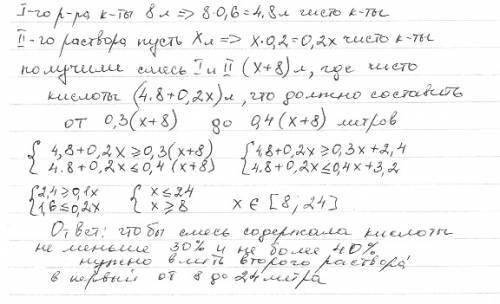 I-го р-ра к-ты 8л => 8·0,6=4,8л чисто к-ты
II-го раствора пусть Xл => x·0,2=0,2x чисто к-ты
получили смесь I и II (x+8)л, где чисто
кислоты (4.8+0,2x)л, что должно составить
от 0,3(x+8) до 0,4(x+8) литров
{ 4,8+0,2x ≥ 0,3(x+8) { 4,8+0,2x ≥ 0,3x+2,4
4.8+0,2x ≤ 0,4(x+8) 4.8+0,2x ≤ 0,4x+3,2
{ 2,4 ≥ 0,1x { x ≤ 24
1,6 ≤ 0,2x x ≥ 8 x ∈ [8; 24]
Ответ: чтобы смесь содержала кислоты
не меньше 30% и не более 40%
нужно влить второго раствора
в первый от 8 до 24 литра